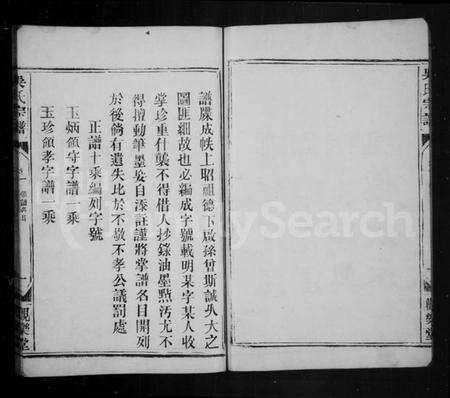 譜牒成帙上昭祖德下啟孫曾斯誠乆大之
圖匪細故也必編成字號載明某字某人收
掌珍重什襲不得借人抄錄油墨㸃汚尤不
得擅動筆墨妄自添註謹將掌譜名目開列
於後倘有遺失比於不敬不孝公議罰處
正譜十乘編列字號
玉炳領守字譜一乘
玉珍領孝字譜一乘
吳氏宗譜
卷一
一
觀樂堂
吳氏宗譜
觀樂堂
MySearch